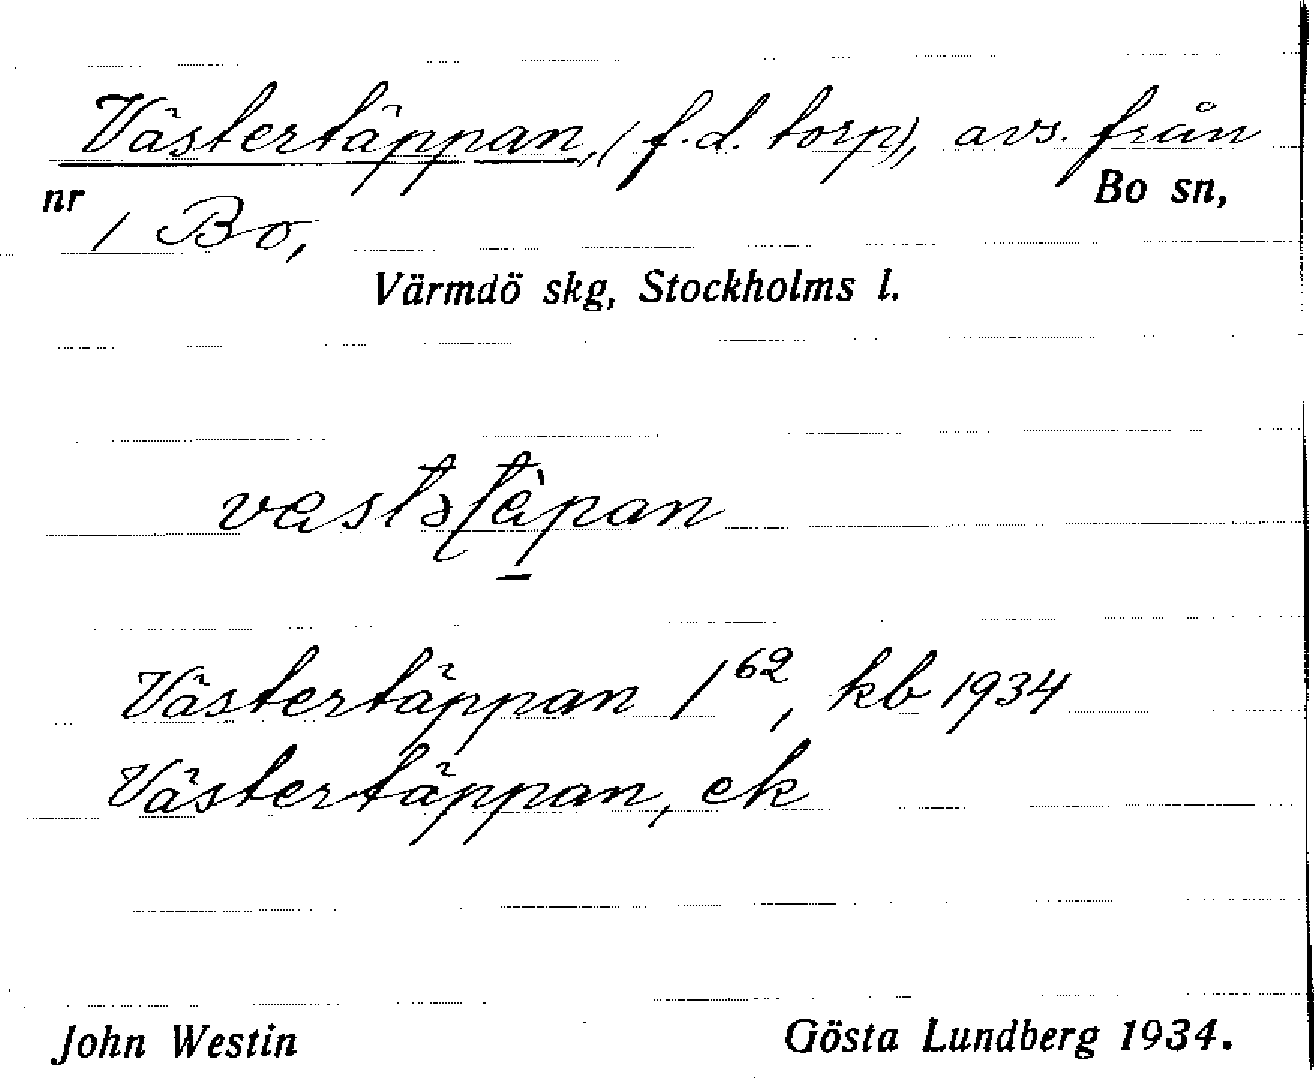 Västertäppan, (f.d. torp), avs. från
nr 1 Bo, Bo sn,
Värmdö skg, Stockholms l.
Västertäppan 1⁶², kb 1934
Västertäppan, ek
John Westin Gösta Lundberg 1934.